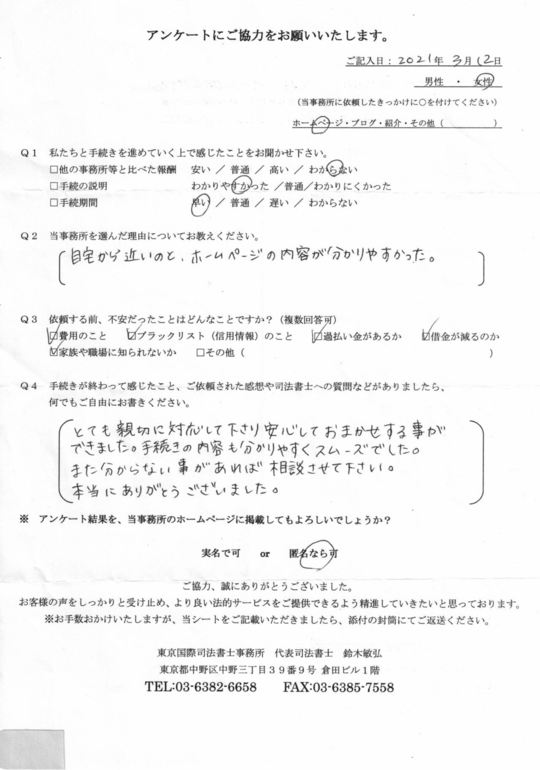 アンケートにご協力をお願いいたします。
ご記入日：2021年 3月12日
男性 ・ 女性
（当事務所に依頼したきっかけに○を付けてください）
ホームページ・ブログ・紹介・その他（　　　　）
Q1 私たちと手続きを進めていく上で感じたことをお聞かせ下さい。
□他の事務所等と比べた報酬　安い ／ 普通 ／ 高い ／ わからない
□手続の説明　わかりやすかった ／普通／わかりにくかった
□手続期間　早い ／ 普通 ／ 遅い ／ わからない
Q2 当事務所を選んだ理由についてお教えください。
自宅から近いのと、ホームページの内容が分かりやすかった。
Q3 依頼する前、不安だったことはどんなことですか？（複数回答可）
☑費用のこと　☑ブラックリスト（信用情報）のこと　☑過払い金があるか　☑借金が減るのか
☑家族や職場に知られないか　□その他（　　　　）
Q4 手続きが終わって感じたこと、ご依頼された感想や司法書士への質問などがありましたら、
何でもご自由にお書きください。
とても親切に対応して下さり安心しておまかせする事が
できました。手続きの内容も分かりやすくスムーズでした。
また分からない事があれば相談させて下さい。
本当にありがとうございました。
※ アンケート結果を、当事務所のホームページに掲載してもよろしいでしょうか？
実名で可　or　匿名なら可
ご協力、誠にありがとうございました。
お客様の声をしっかりと受け止め、より良い法的サービスをご提供できるよう精進していきたいと思っております。
※お手数おかけいたしますが、当シートをご記載いただきましたら、添付の封筒にてご返送ください。
東京国際司法書士事務所　代表司法書士　鈴木敏弘
東京都中野区中野三丁目３９番９号 倉田ビル１階
TEL:03-6382-6658　FAX:03-6385-7558